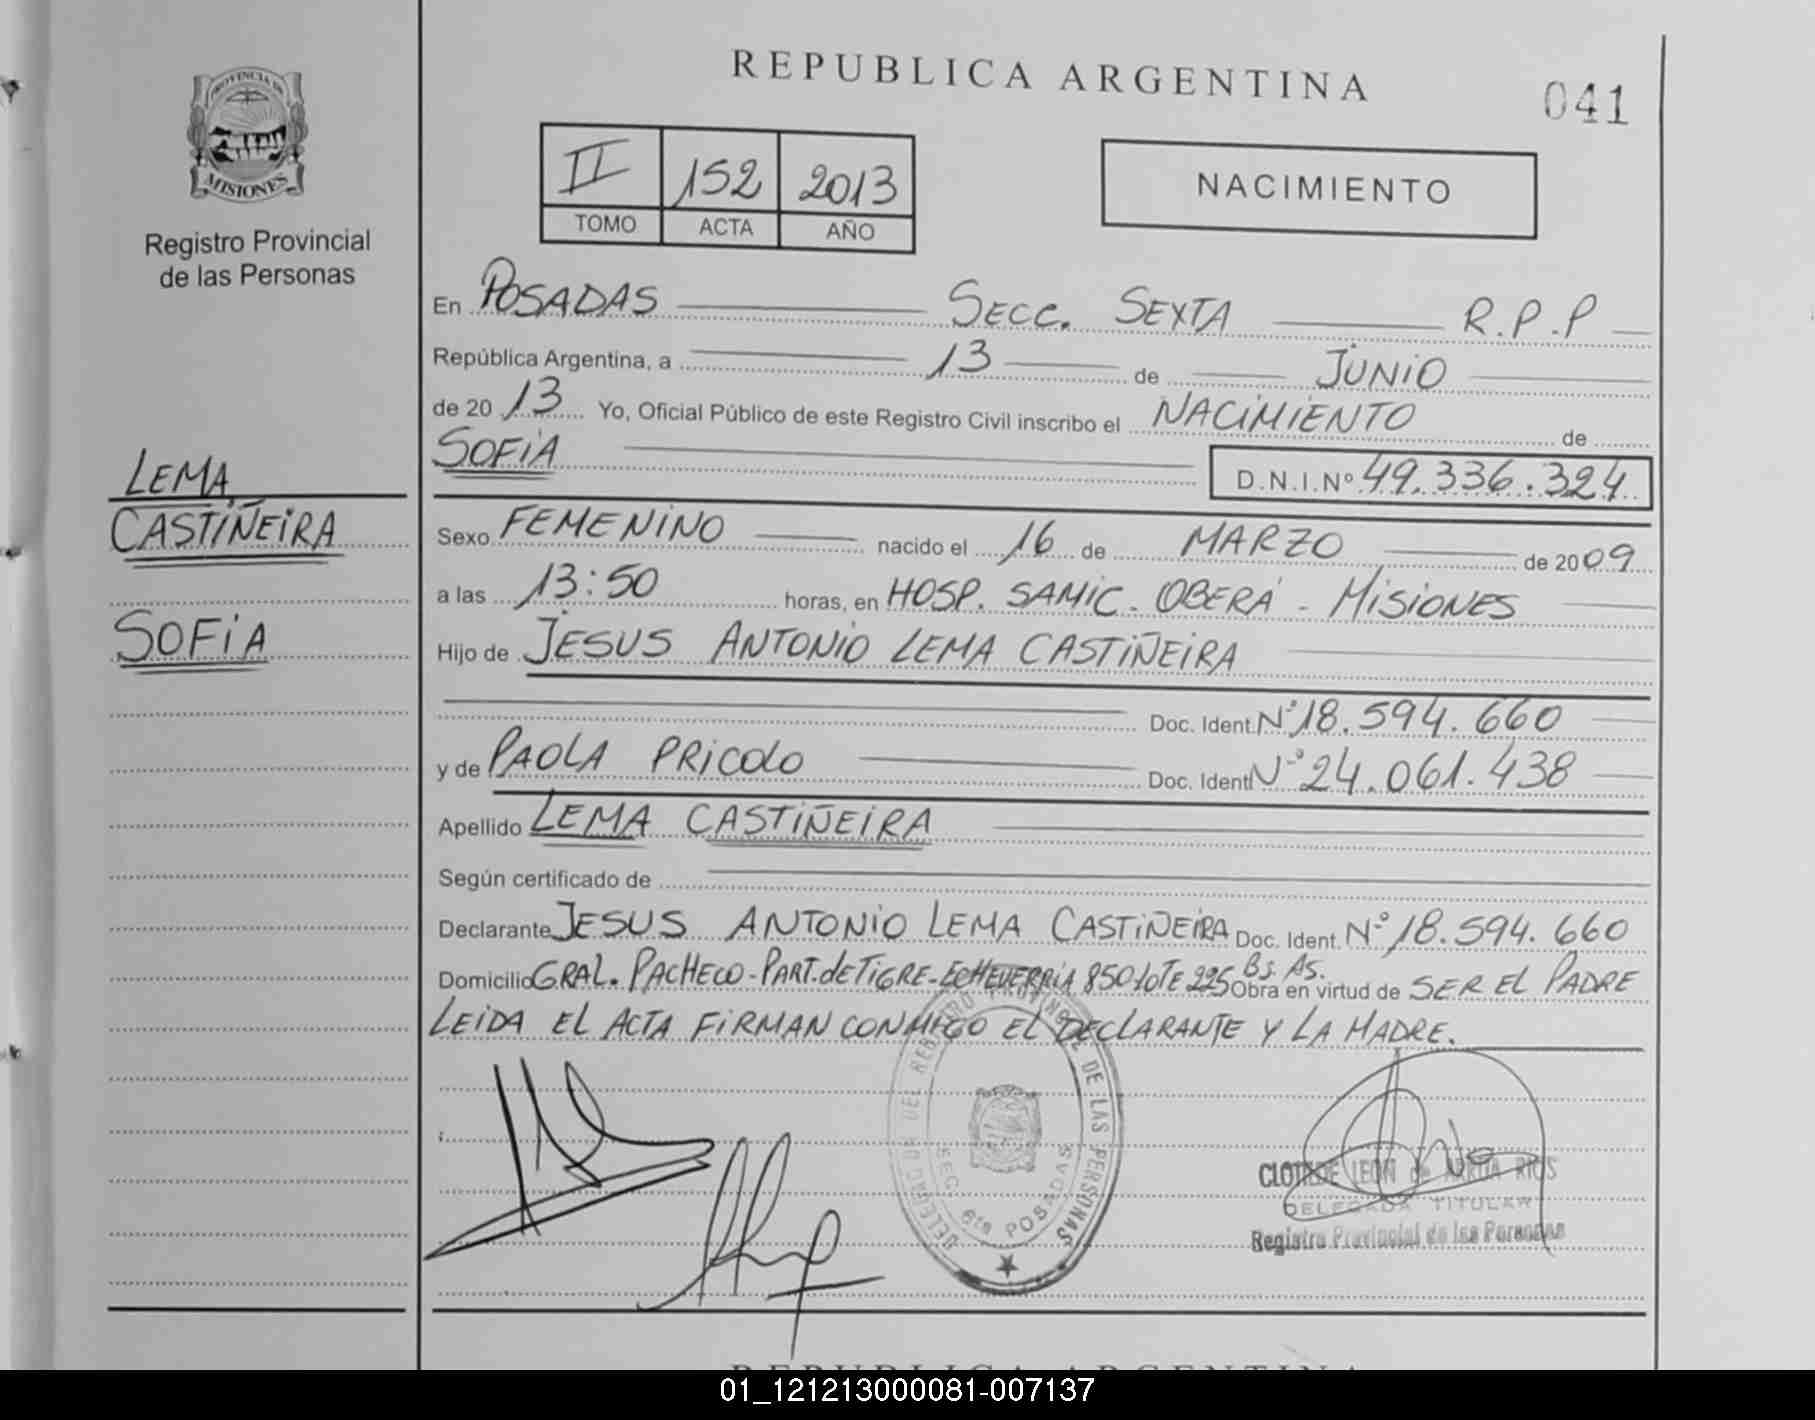 REPUBLICA ARGENTINA
041
PROVINCIA DE
MISIONES
Registro Provincial
de las Personas
II 152 2013
TOMO ACTA AÑO
NACIMIENTO
En POSADAS SECC. SEXTA R.P.P
República Argentina, a 13 de JUNIO
de 20 13 Yo, Oficial Público de este Registro Civil inscribo el NACIMIENTO de
SOFIA D.N.I.Nº 49.336.324
LEMA
CASTIÑEIRA
SOFIA
Sexo FEMENINO nacido el 16 de MARZO de 2009
a las 13:50 horas, en HOSP. SAMIC. OBERÁ - MISIONES
Hijo de JESUS ANTONIO LEMA CASTIÑEIRA
Doc. Ident. Nº 18.594.660
y de PAOLA PRICOLO Doc. Ident Nº 24.061.438
Apellido LEMA CASTIÑEIRA
Según certificado de
Declarante JESUS ANTONIO LEMA CASTIÑEIRA Doc. Ident. Nº 18.594.660
Domicilio GRAL. PACHECO - PART. de TIGRE - ECHEVERRIA 850 LOTE 225 Bs. As. Obra en virtud de SER EL PADRE
LEIDA EL ACTA FIRMAN CONMIGO EL DECLARANTE Y LA MADRE.
DE LAS PERSONAS
SEC. 6ta POSADAS
CLOTILDE LEON de ARRUA RIOS
DELEGADA TITULAR
Registro Provincial de las Personas
REPUBLICA ARGENTINA
01_121213000081-007137